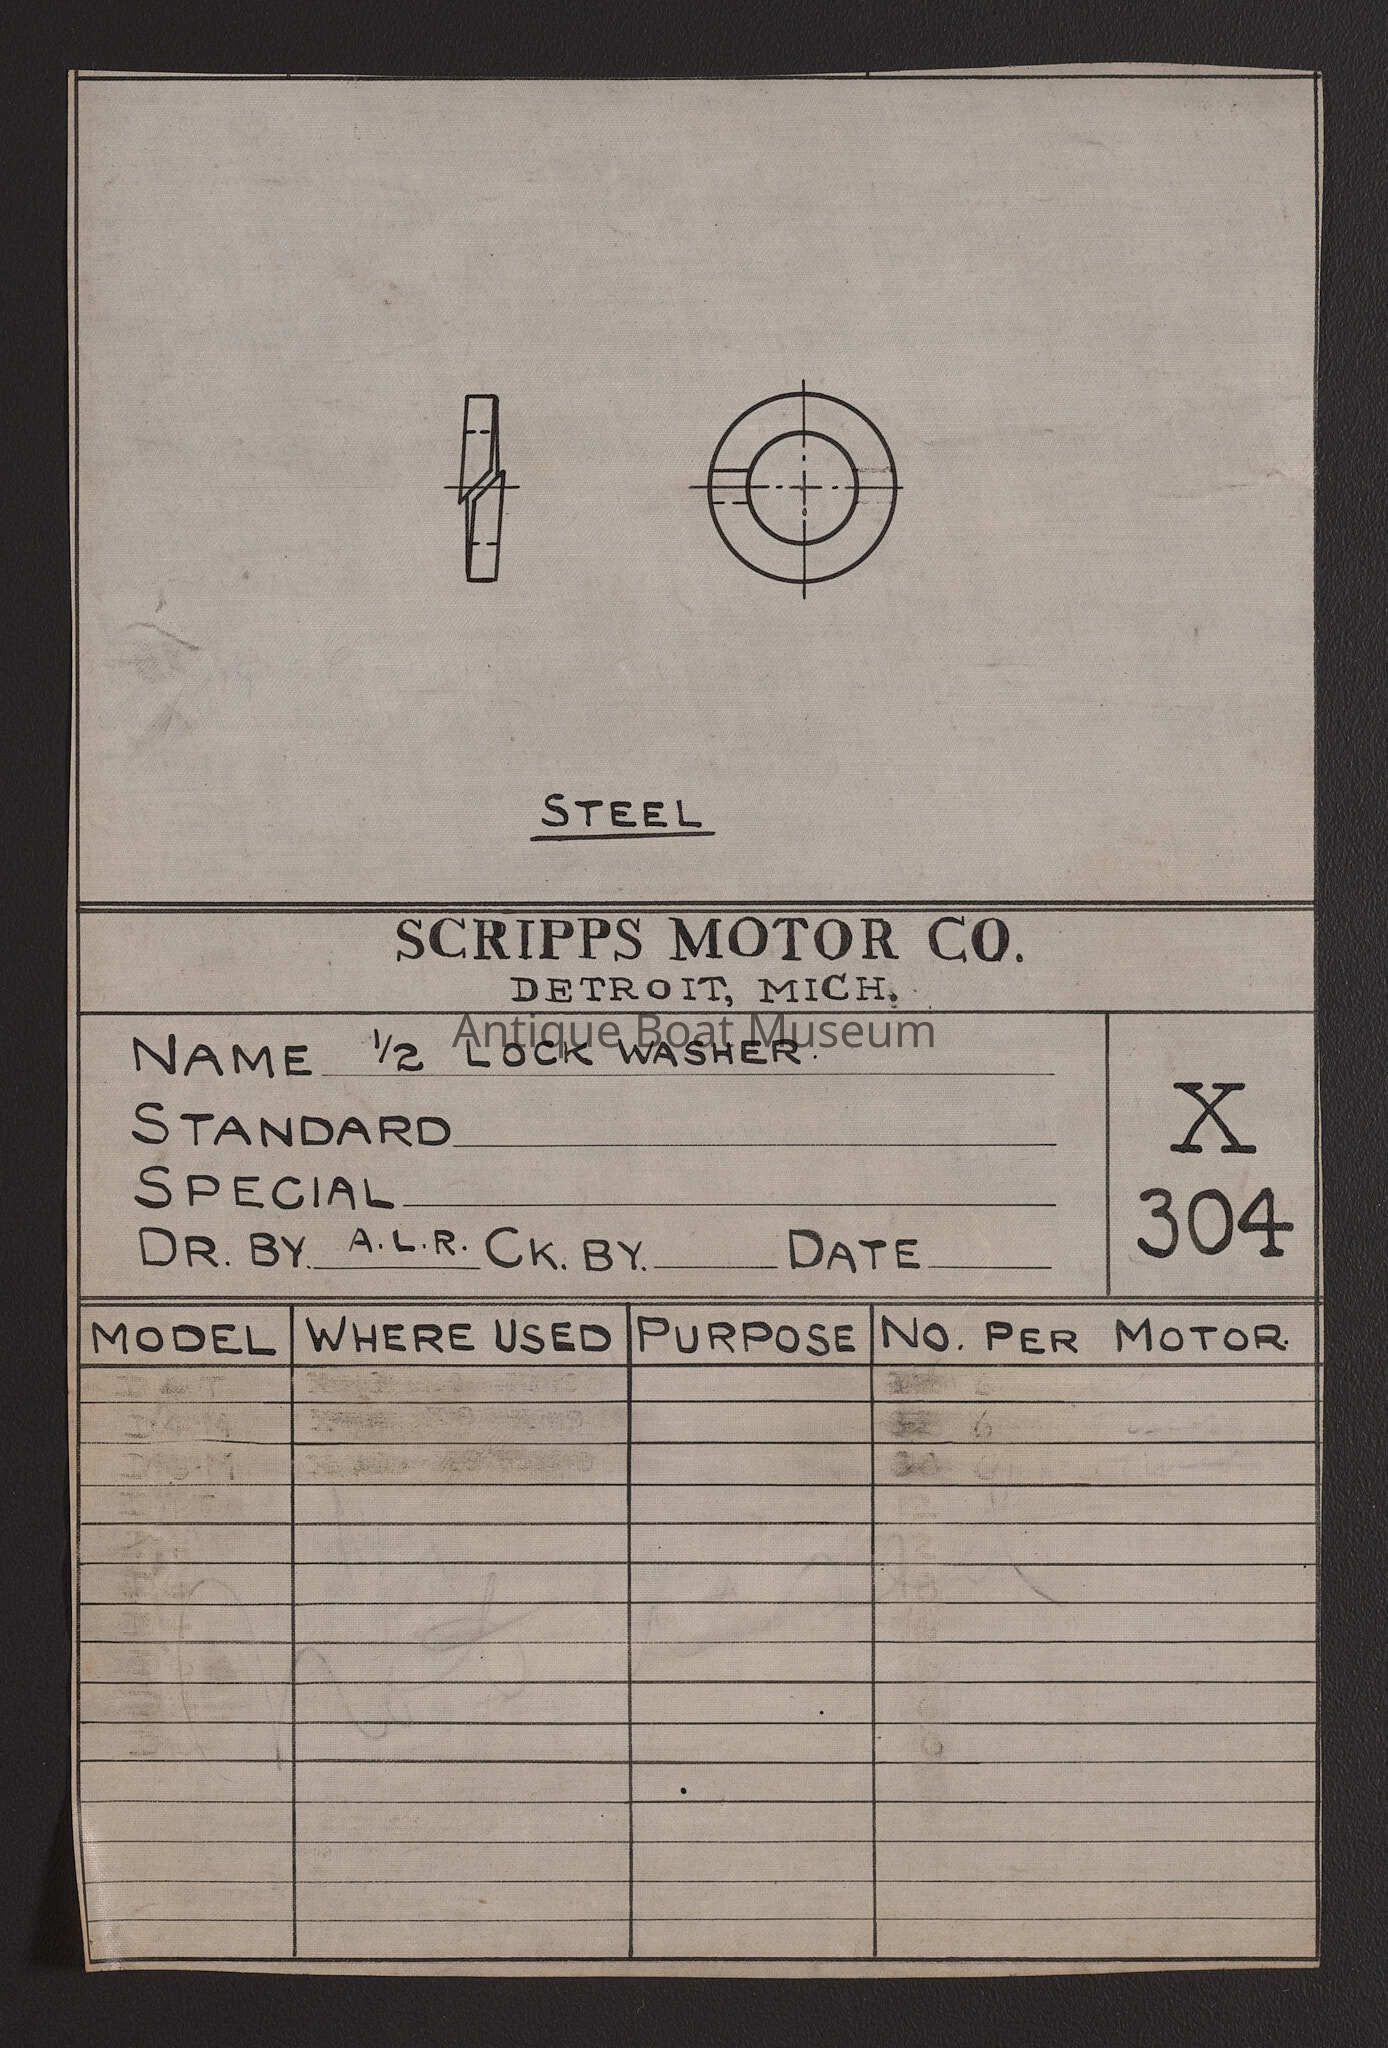 STEEL
SCRIPPS MOTOR CO.
DETROIT, MICH.
Antique Boat Museum
NAME 1/2 LOCK WASHER.
STANDARD
SPECIAL
DR. BY. A.L.R. CK. BY. DATE
X
304
MODEL WHERE USED PURPOSE NO. PER MOTOR.